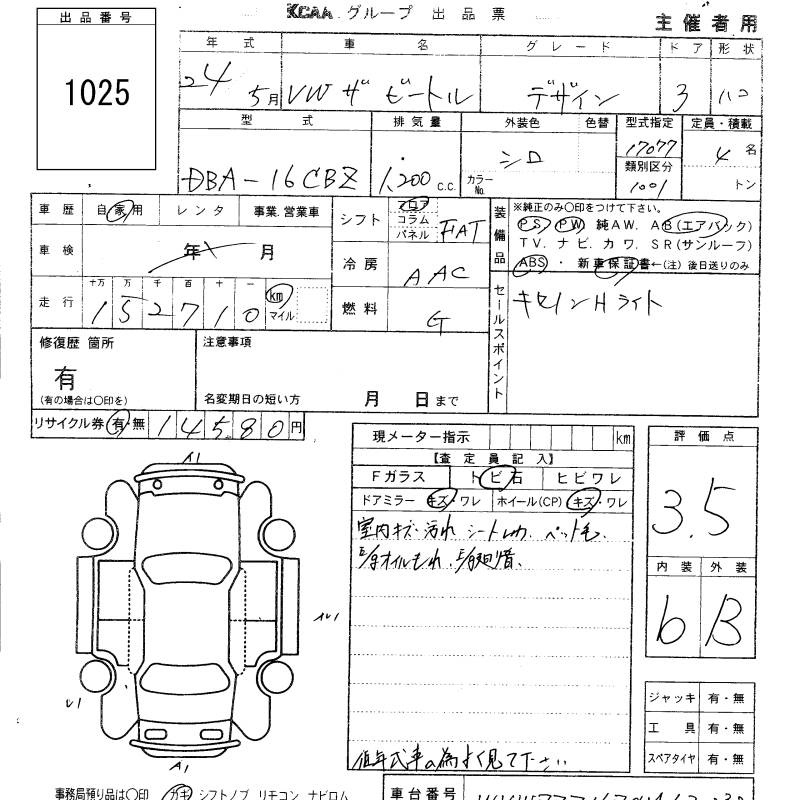 KCAA グループ 出品票
主催者用
出品番号
1025
年式 車名 グレード ドア 形状
24 5月 VW ザ ビートル デザイン 3 ハコ
型式 排気量 外装色 色替 型式指定 定員・積載
DBA-16CBZ 1,200 c.c. シロ カラーNo. 17077 4 名
類別区分
1001 トン
車歴 自家用 レンタ 事業.営業車
シフト フロア コラム パネル FAT
装備品 ※純正のみ〇印をつけて下さい。
PS PW 純AW. AB(エアバック)
TV. ナビ. カワ. SR(サンルーフ)
ABS ・ 新車保証書←(注) 後日送りのみ
車検 年 月
冷房 AAC
走行 十万 万 千 百 十 一
152710 km マイル
燃料 G
セールスポイント
キセノンHライト
修復歴 箇所
有
(有の場合は〇印を)
注意事項
名変期日の短い方 月 日まで
リサイクル券 有・無 14580円
現メーター指示 km
【査定員記入】
Fガラス トビ石 ヒビワレ
ドアミラー キズ・ワレ ホイール(CP) キズ・ワレ
室内キズ・汚れ シート ペット毛.
E/gオイルもれ.
低年式車の為よく見て下さい
評価点
3.5
内装 外装
B
A1
A1
ジャッキ 有・無
工具 有・無
スペアタイヤ 有・無
事務局預り品は〇印 カギ シフトノブ リモコン ナビロム
車台番号